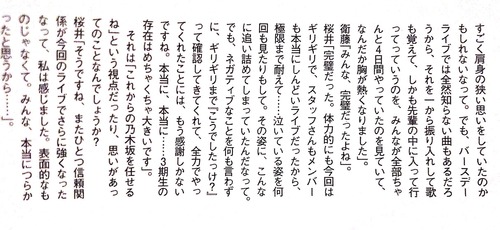 すごく肩身の狭い思いをしていたのか
もしれないなって。でも、バースデー
ライブでは全然知らない曲もあるだろ
うから、それを一から振り入れして歌
も覚えて、しかも先輩の中に入って行
ってっていうのを、みんなが全部ちゃ
んと4日間やっていたのを見ていて、
なんだか胸が熱くなりました」。
衛藤「みんな、完璧だったよね」。
桜井「完璧だった。体力的にも今回は
ギリギリで、スタッフさんもメンバー
も本当にしんどいライブだったから、
極限まで耐えて……泣いている姿を何
回も見たりもして。その姿に、こんな
に追い詰めてしまっていたんだなって。
でも、ネガティブなことを何も言わず
に、ギリギリまで“こうでしたっけ？”
って確認してきてくれて、全力でやっ
てくれたことには、もう感謝しかない
ですね。本当に、本当に……3期生の
存在はめちゃくちゃ大きいです」。
それは「これからの乃木坂を任せる
ね」という視点だったり、思いがあっ
てのことなんでしょうか？
桜井「そうですね、またひとつ信頼関
係が今回のライブでさらに強くなった
なって、私は感じました。表面的なも
のじゃなくて。みんな、本当につらか
ったと思うから……」。